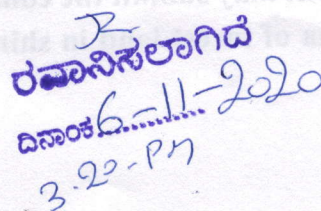 ರವಾನಿಸಲಾಗಿದೆ
ದಿನಾಂಕ 6-11-2020
3-20-PM